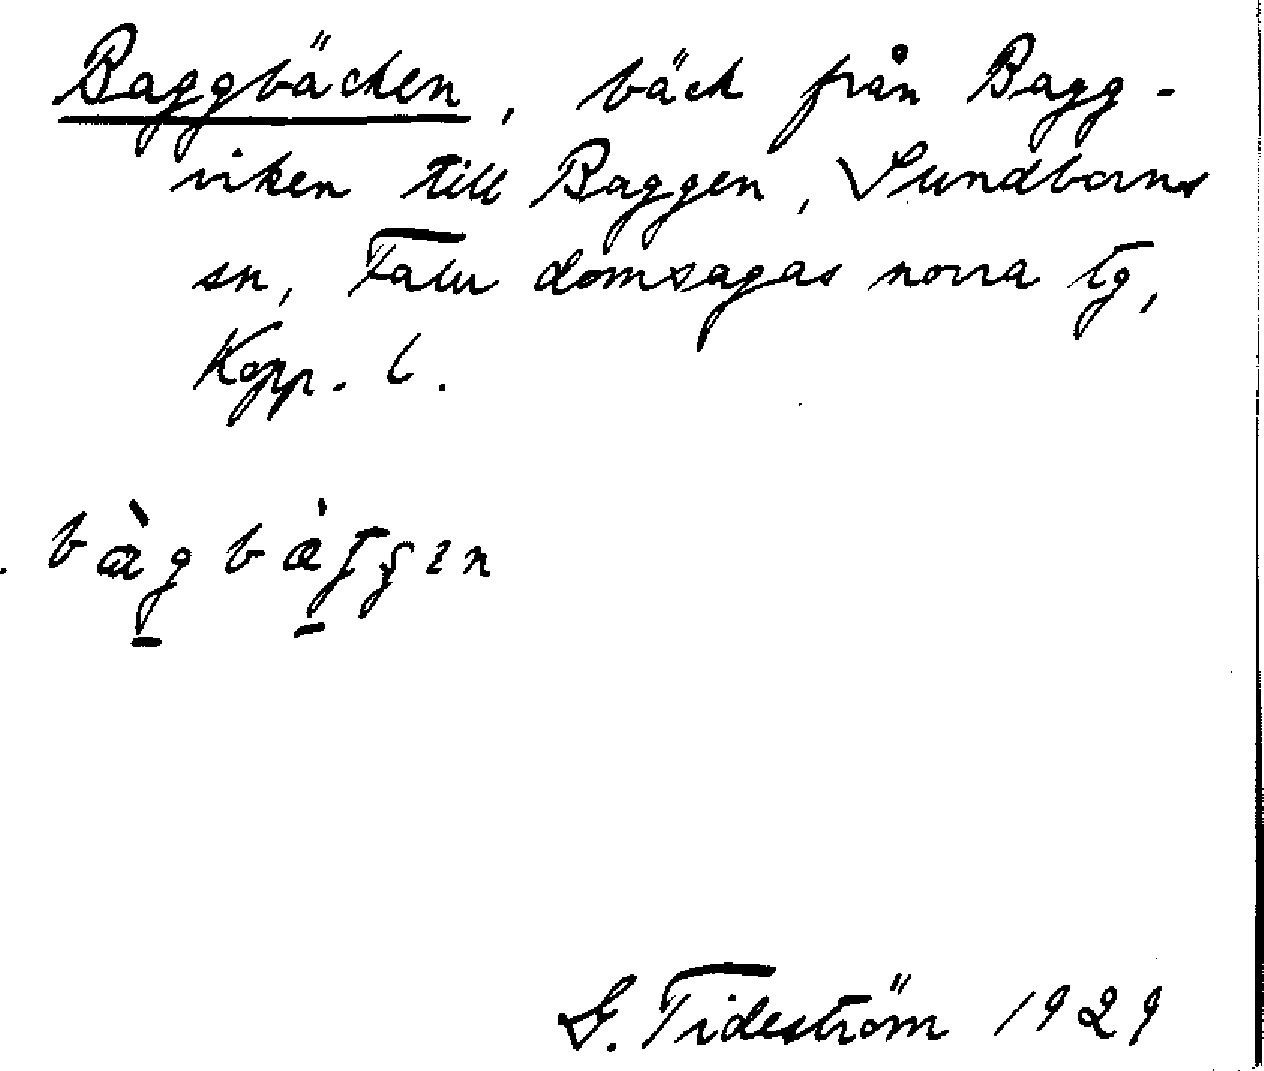 Baggbäcken, bäck från Bagg-
viken till Baggen, Sundborns
sn, Falu domsagas norra tg,
Kopp. l.
G. Tideström 1929